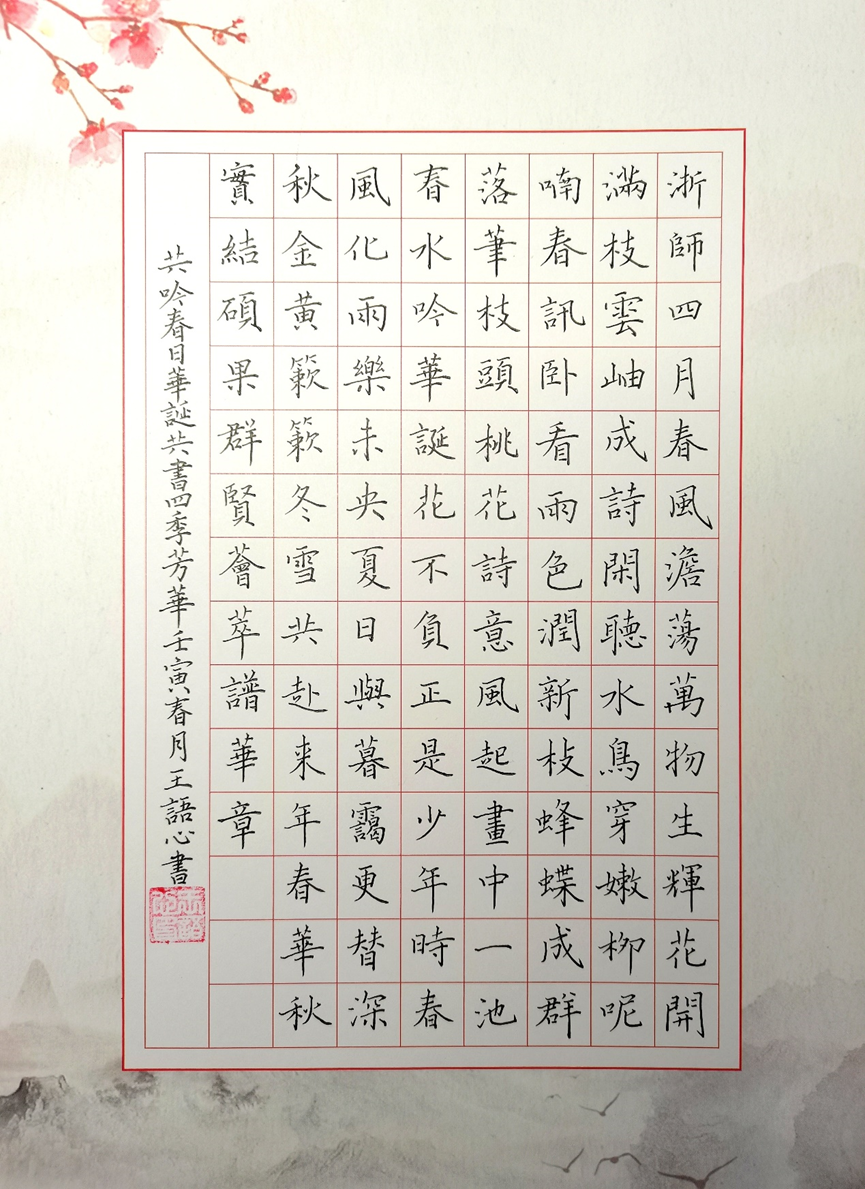 浙師四月春風澹蕩萬物生輝花開
滿枝雲岫成詩閑聽水鳥穿嫩柳呢
喃春訊卧看雨色潤新枝蜂蝶成群
落筆枝頭桃花詩意風起畫中一池
春水吟華誕花不負正是少年時春
風化雨樂未央夏日與暮靄更替深
秋金黃簌簌冬雪共赴来年春華秋
實結碩果群賢薈萃譜華章
共吟春日華誕共書四季芳華壬寅春月王語心書